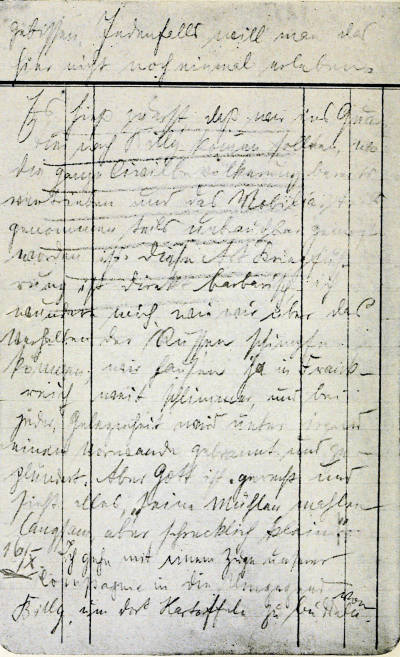 gebissen. Jedenfalls will man das
hier nicht noch einmal erleben.
Es hieß zuerst, daß wir ins Quar-
tier nach Billy kommen sollten, wo
die ganze Civilbevölkerung bereits
vertrieben und das Mobiliar teils
genommen, teils unbrauchbar gemacht
worden ist. Diese Art Kriegfüh-
rung ist direkt barbarisch. Ich
wundere mich, wie wir über das
Verhalten der Russen schimpfen
können, wir hausen ja in Frank-
reich weit schlimmer, und bei
jeder Gelegenheit wird unter irgend
einem Vorwande gebrannt und ge-
plündert. Aber Gott ist gerecht und
sieht alles, "Seine Mühlen mahlen
langsam, aber schrecklich klein".
Ich gehe mit einem Zuge unserer
Compagnie in die Umgegend von
Billy, um dort Kartoffeln zu